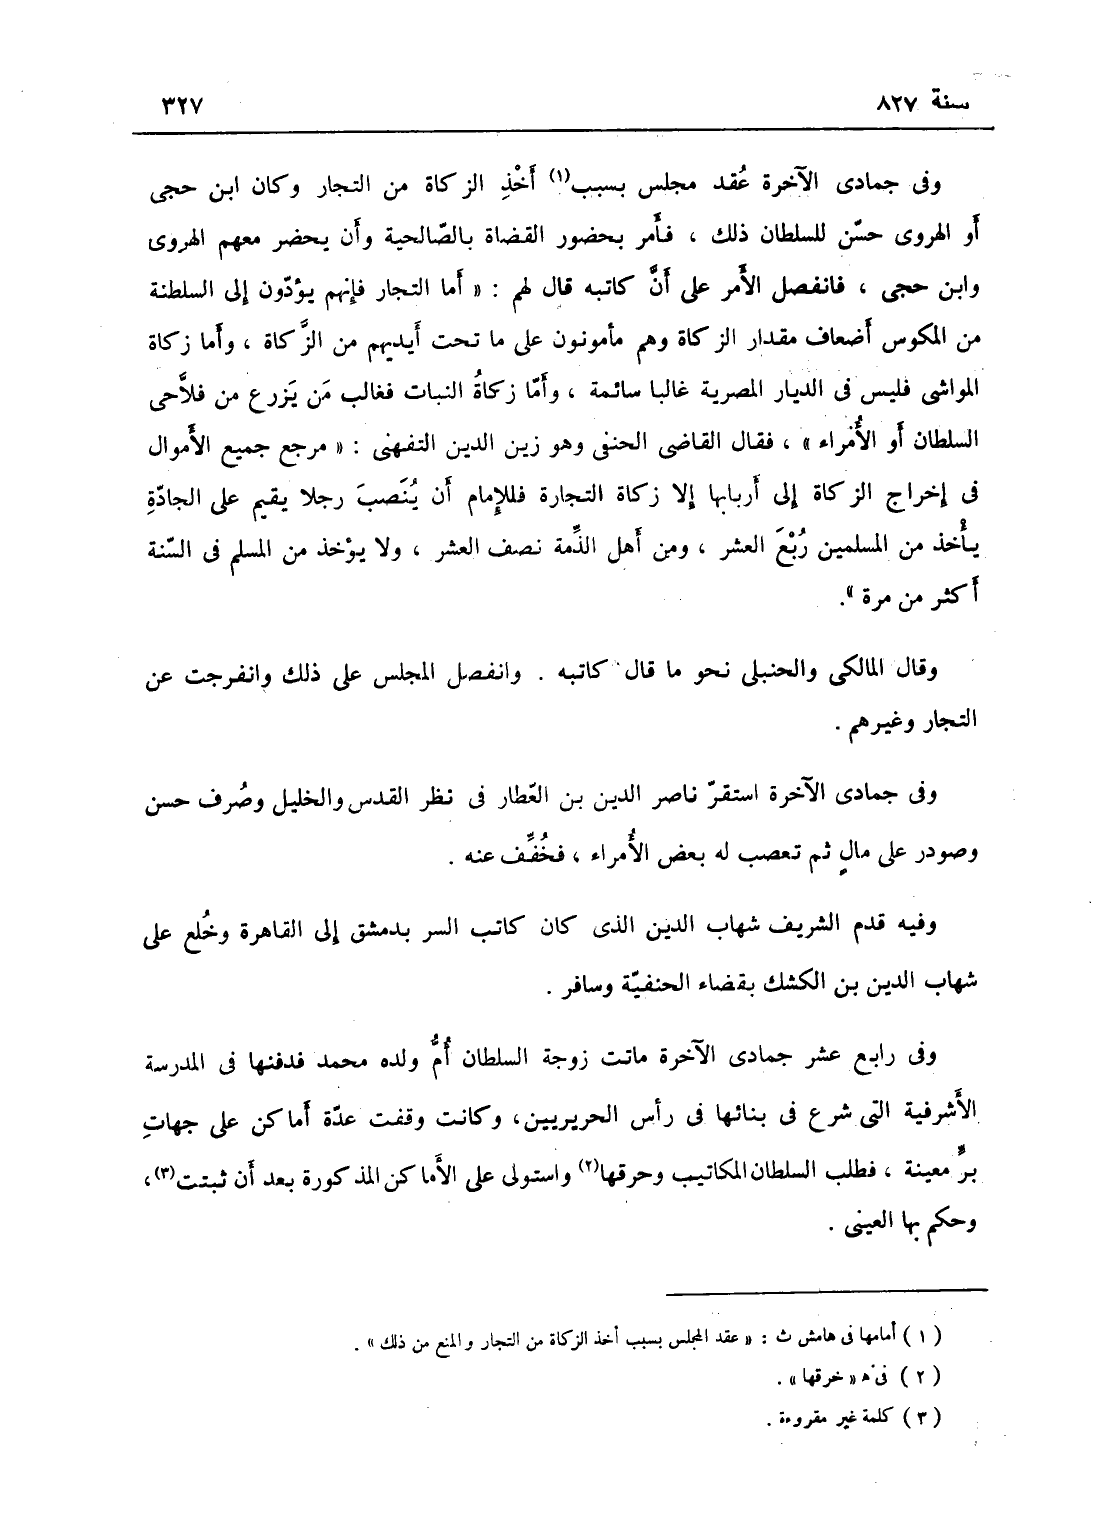 سنة ٨٢٧
٣٢٧
وفى جمادى الآخرة عُقد مجلس بسبب(١) أَخْذِ الزكاة من التجار وكان ابن حجى
أَو الهروى حسّن للسلطان ذلك ، فأَمر بحضور القضاة بالصّالحية وأَن يحضر معهم الهروى
وابن حجى ، فانفصل الأَمر على أَنَّ كاتبه قال لهم : « أَما التجار فإنهم يؤدّون إلى السلطنة
من المكوس أَضعاف مقدار الزكاة وهم مأمونون على ما تحت أَيديهم من الزَّكاة ، وأَما زكاة
المواشى فليس فى الديار المصرية غالبا سائمة ، وأَمّا زكاةُ النبات فغالب مَن يَزرع من فلاَّحى
السلطان أَو الأُمراء » ، فقال القاضى الحنفى وهو زين الدين التفهنى : « مرجع جميع الأَموال
فى إخراج الزكاة إلى أَربابها إلا زكاة التجارة فللإمام أَن يُنَصبَ رجلا يقيم على الجادّةِ
يأْخذ من المسلمين رُبْعَ العشر ، ومن أَهل الذِّمة نصف العشر ، ولا يؤخذ من المسلم فى السّنة
أَكثر من مرة ».
وقال المالكى والحنبلى نحو ما قال كاتبه . وانفصل المجلس على ذلك وانفرجت عن
التجار وغيرهم .
وفى جمادى الآخرة استقرّ ناصر الدين بن العّطار فى نظر القدس والخليل وصُرف حسن
وصودر على مالٍ ثم تعصب له بعض الأُمراء ، فخُفِّف عنه .
وفيه قدم الشريف شهاب الدين الذى كان كاتب السر بدمشق إلى القاهرة وخُلع على
شهاب الدين بن الكشك بقضاء الحنفيّة وسافر .
وفى رابع عشر جمادى الآخرة ماتت زوجة السلطان أُمُّ ولده محمد فدفنها فى المدرسة
الأَشرفية التى شرع فى بنائها فى رأس الحريريين، وكانت وقفت عدّة أَماكن على جهاتِ
برٍّ معينة ، فطلب السلطان المكاتيب وحرقها(٢) واستولى على الأَماكن المذكورة بعد أن ثبتت(٣)،
وحكم بها العينى .
(١) أمامها فى هامش ث : « عقد المجلس بسبب أخذ الزكاة من التجار والمنع من ذلك » .
(٢) فى ﻫ « خرقها » .
(٣) كلمة غير مقروءة .